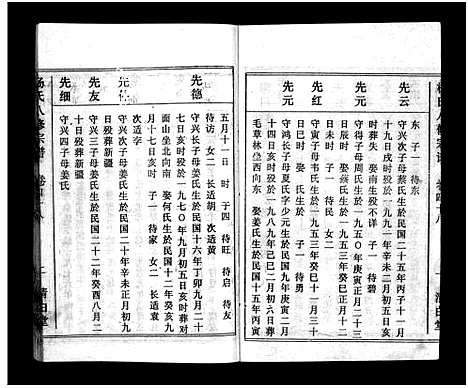 杨氏八修宗谱
清白堂
先云
东 子一 待东
守兴次子母姜氏生於民国二十五年丙子十一月
十九日戌时殁於一九九〇年二月初五日亥
时葬失 娶南生殁不详 子一 待碧
先元
守得子母周氏生於民国九年庚寅正月二十三
日辰时 娶 氏生於一九五三年癸巳正月十三
日未时 子一 待民 女二
先红
守寅子母韦氏生於一九五三年十一月三
日巳时 娶 氏生於 子一 待勇
先元
守鸿长子母夏氏字少元生於民国九年庚寅二月
二十四日亥时殁於一九八九年己巳十月初六日亥
毛草林坐西向东 娶姜氏生於民国十五年丙寅
五月十一日 时 子四 待旺 待启 待友
待访 女二 长适胡 次适黄
先德
守鸿次子母姜氏生於民国十六年丁卯九月二十
七日亥时殁於一九七〇年九月初五日亥时葬对
面山坐北向南 娶何氏生於民国十二年癸亥九
月十一日亥时 子一 待家 女二 长适袁
次适李
守兴次子母姜氏生於民国二十年辛未正月初九
日殁葬新疆
先友
守兴三子母姜氏生於民国二十二年癸酉八月二
十日殁葬新疆
先细
守兴四子母姜氏
杨氏八修宗谱
清白堂